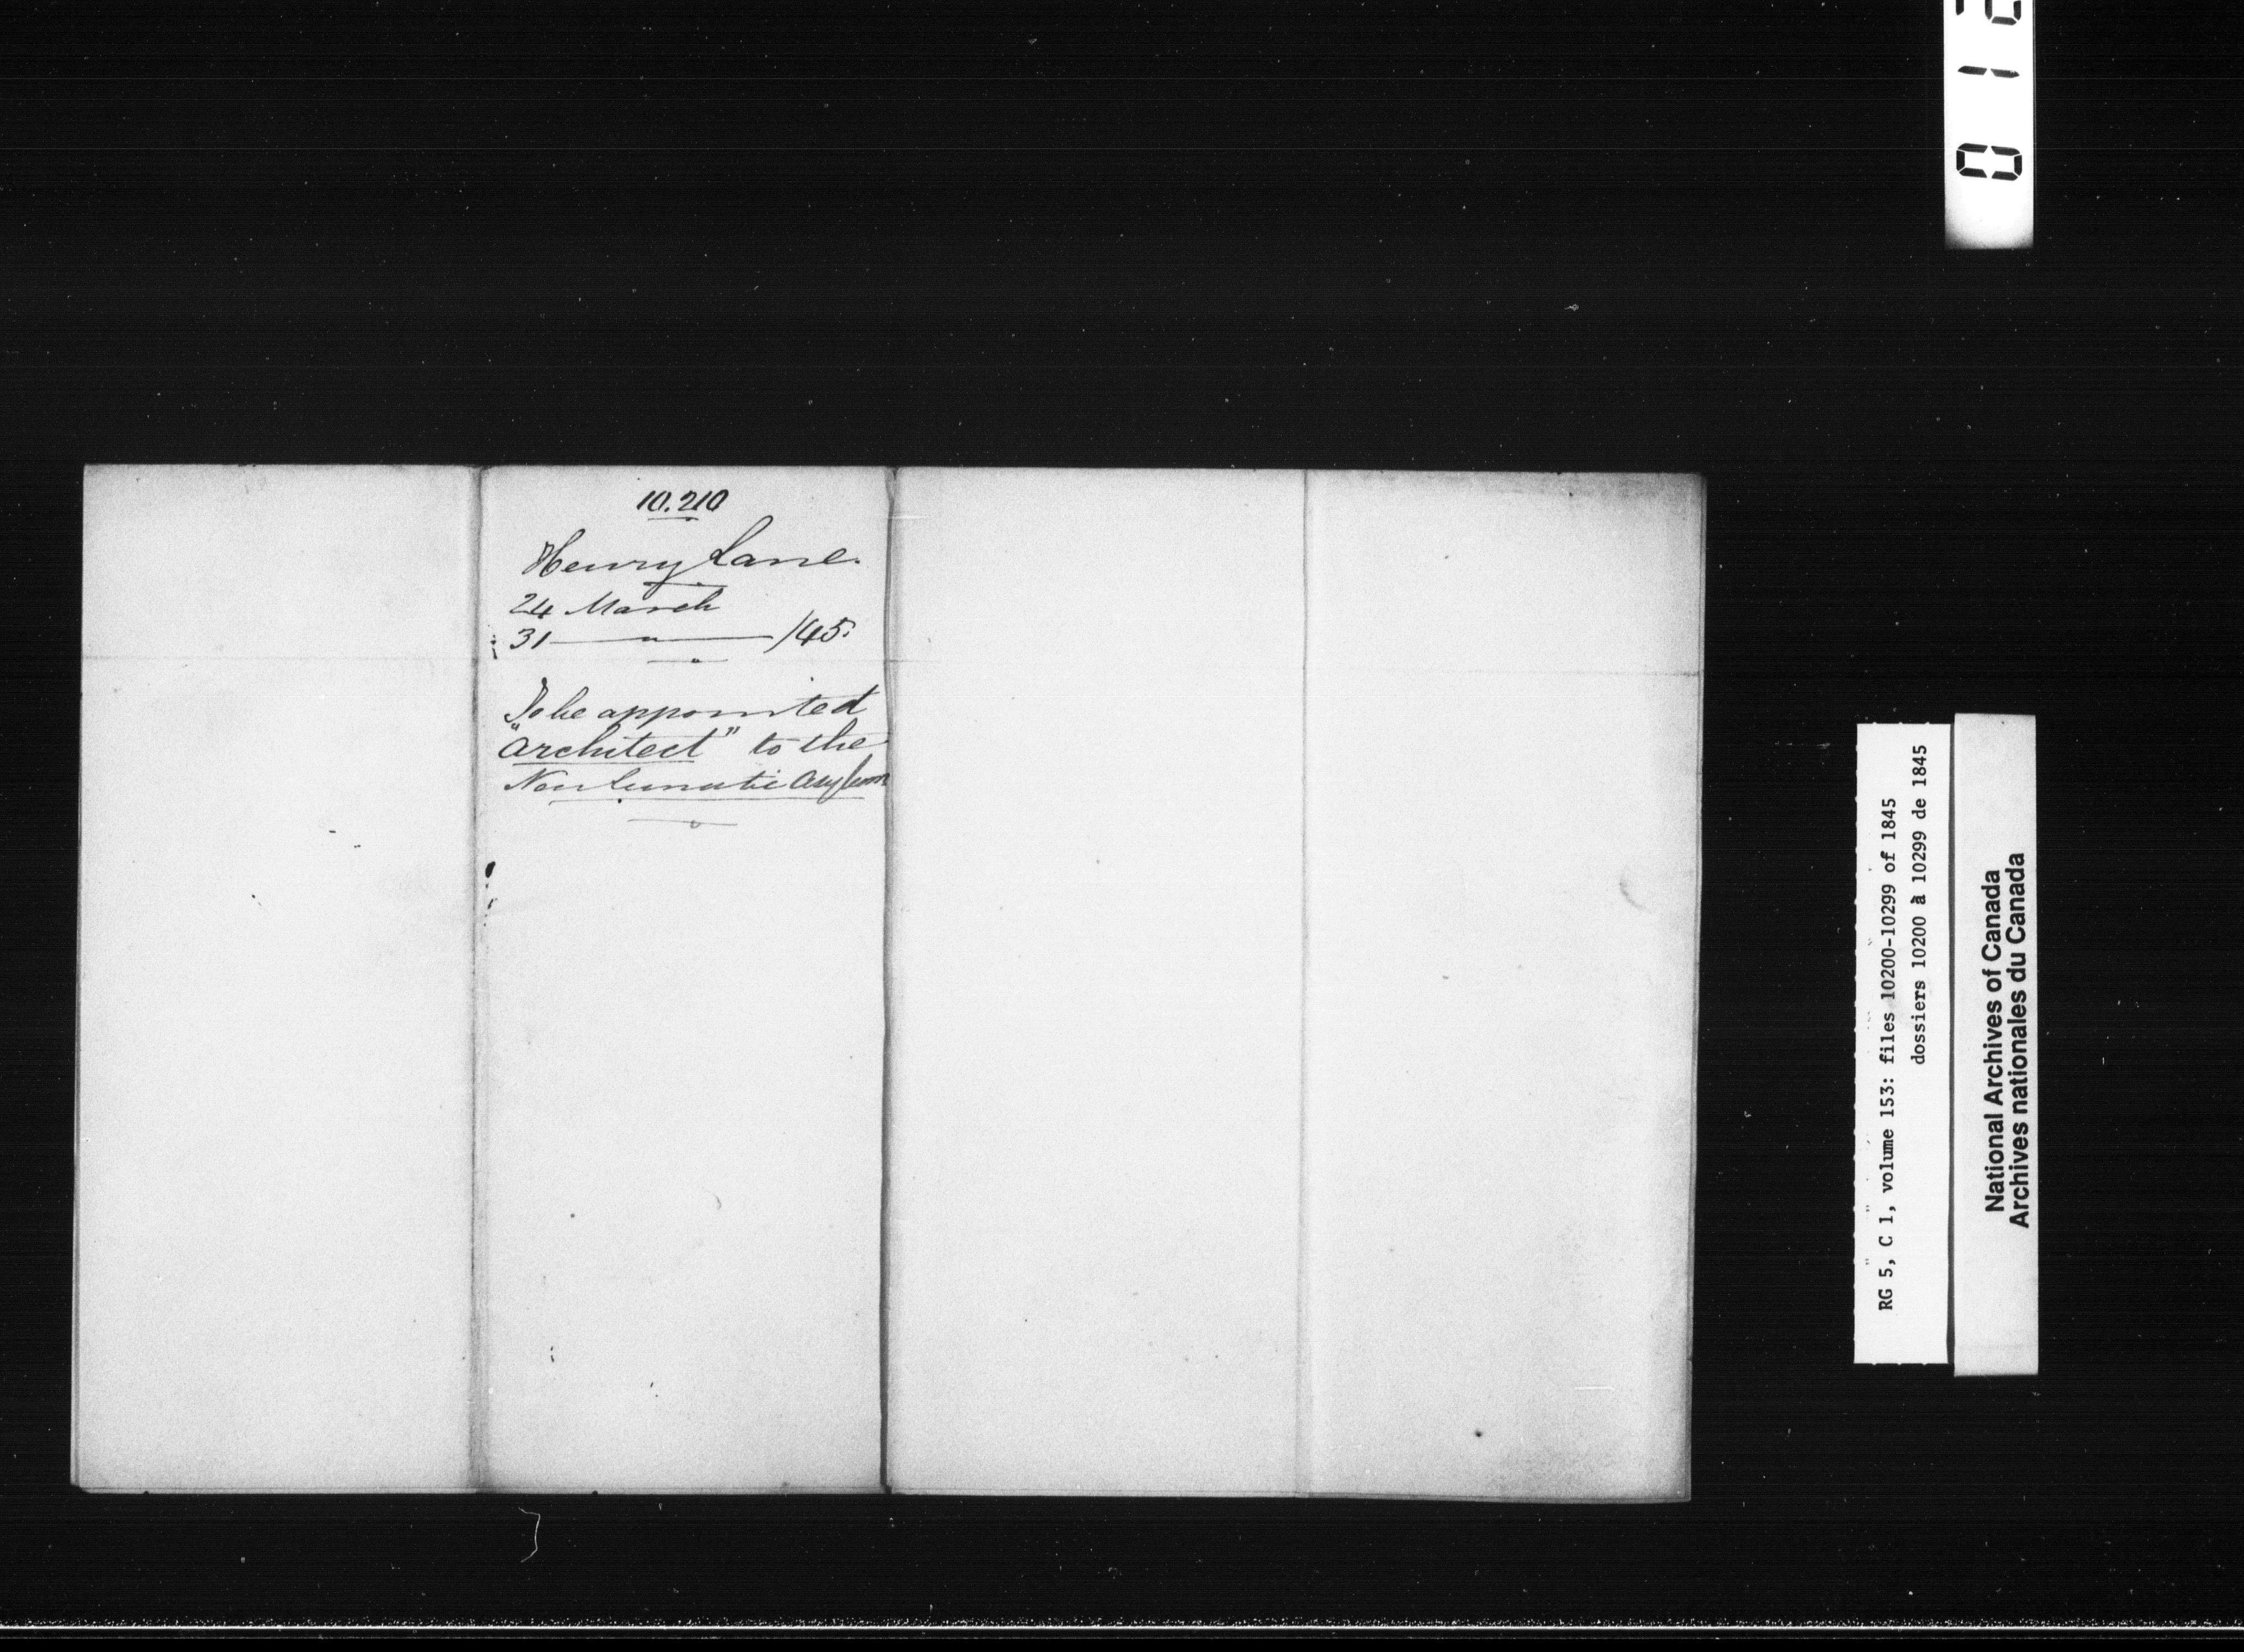 10.210
Henry Lane.
24 March
31 — " — /45.
To be appointed
"architect" to the
New Lunatic Asylum
RG 5, C 1, volume 153: files 10200-10299 of 1845
dossiers 10200 à 10299 de 1845
National Archives of Canada
Archives nationales du Canada
012